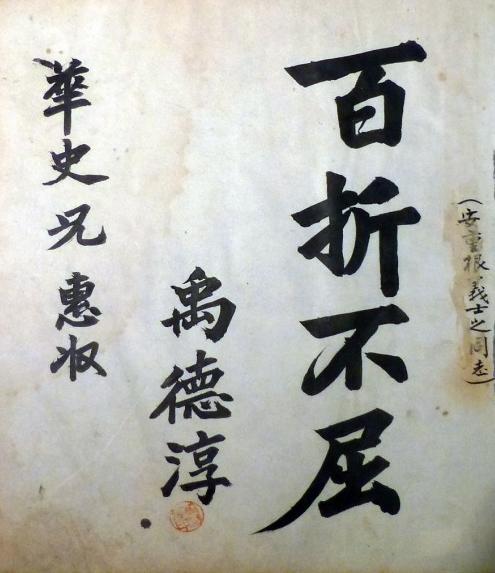 (安重根義士之同志)
百折不屈
禹德淳
華史兄惠收